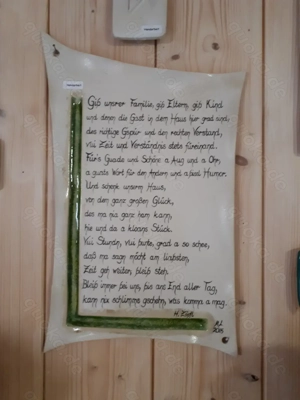 Gib unsrer Familie, gib Eltern, gib Kind
und denen die Gast in dem Haus hier grad sind,
des richtige Gspür und den rechten Verstand,
vui Zeit und Verständnis stets füreinand.
Für's Guade und Schöne a Aug und a Ohr,
a guats Wort für den Andern und a bissl Humor.
Und schenk unserm Haus,
von dem ganz großen Glück,
des ma nia ganz ham kann,
hie und da a kloans Stück.
Vui Stundn, vui bunte, grad a so schee,
daß ma sagn möcht am liabsten,
Zeit geh weiter, bleib steh.
Bleib immer bei uns, bis ans End aller Tag,
kann nix schlimms gschehn, was kemma a mag.